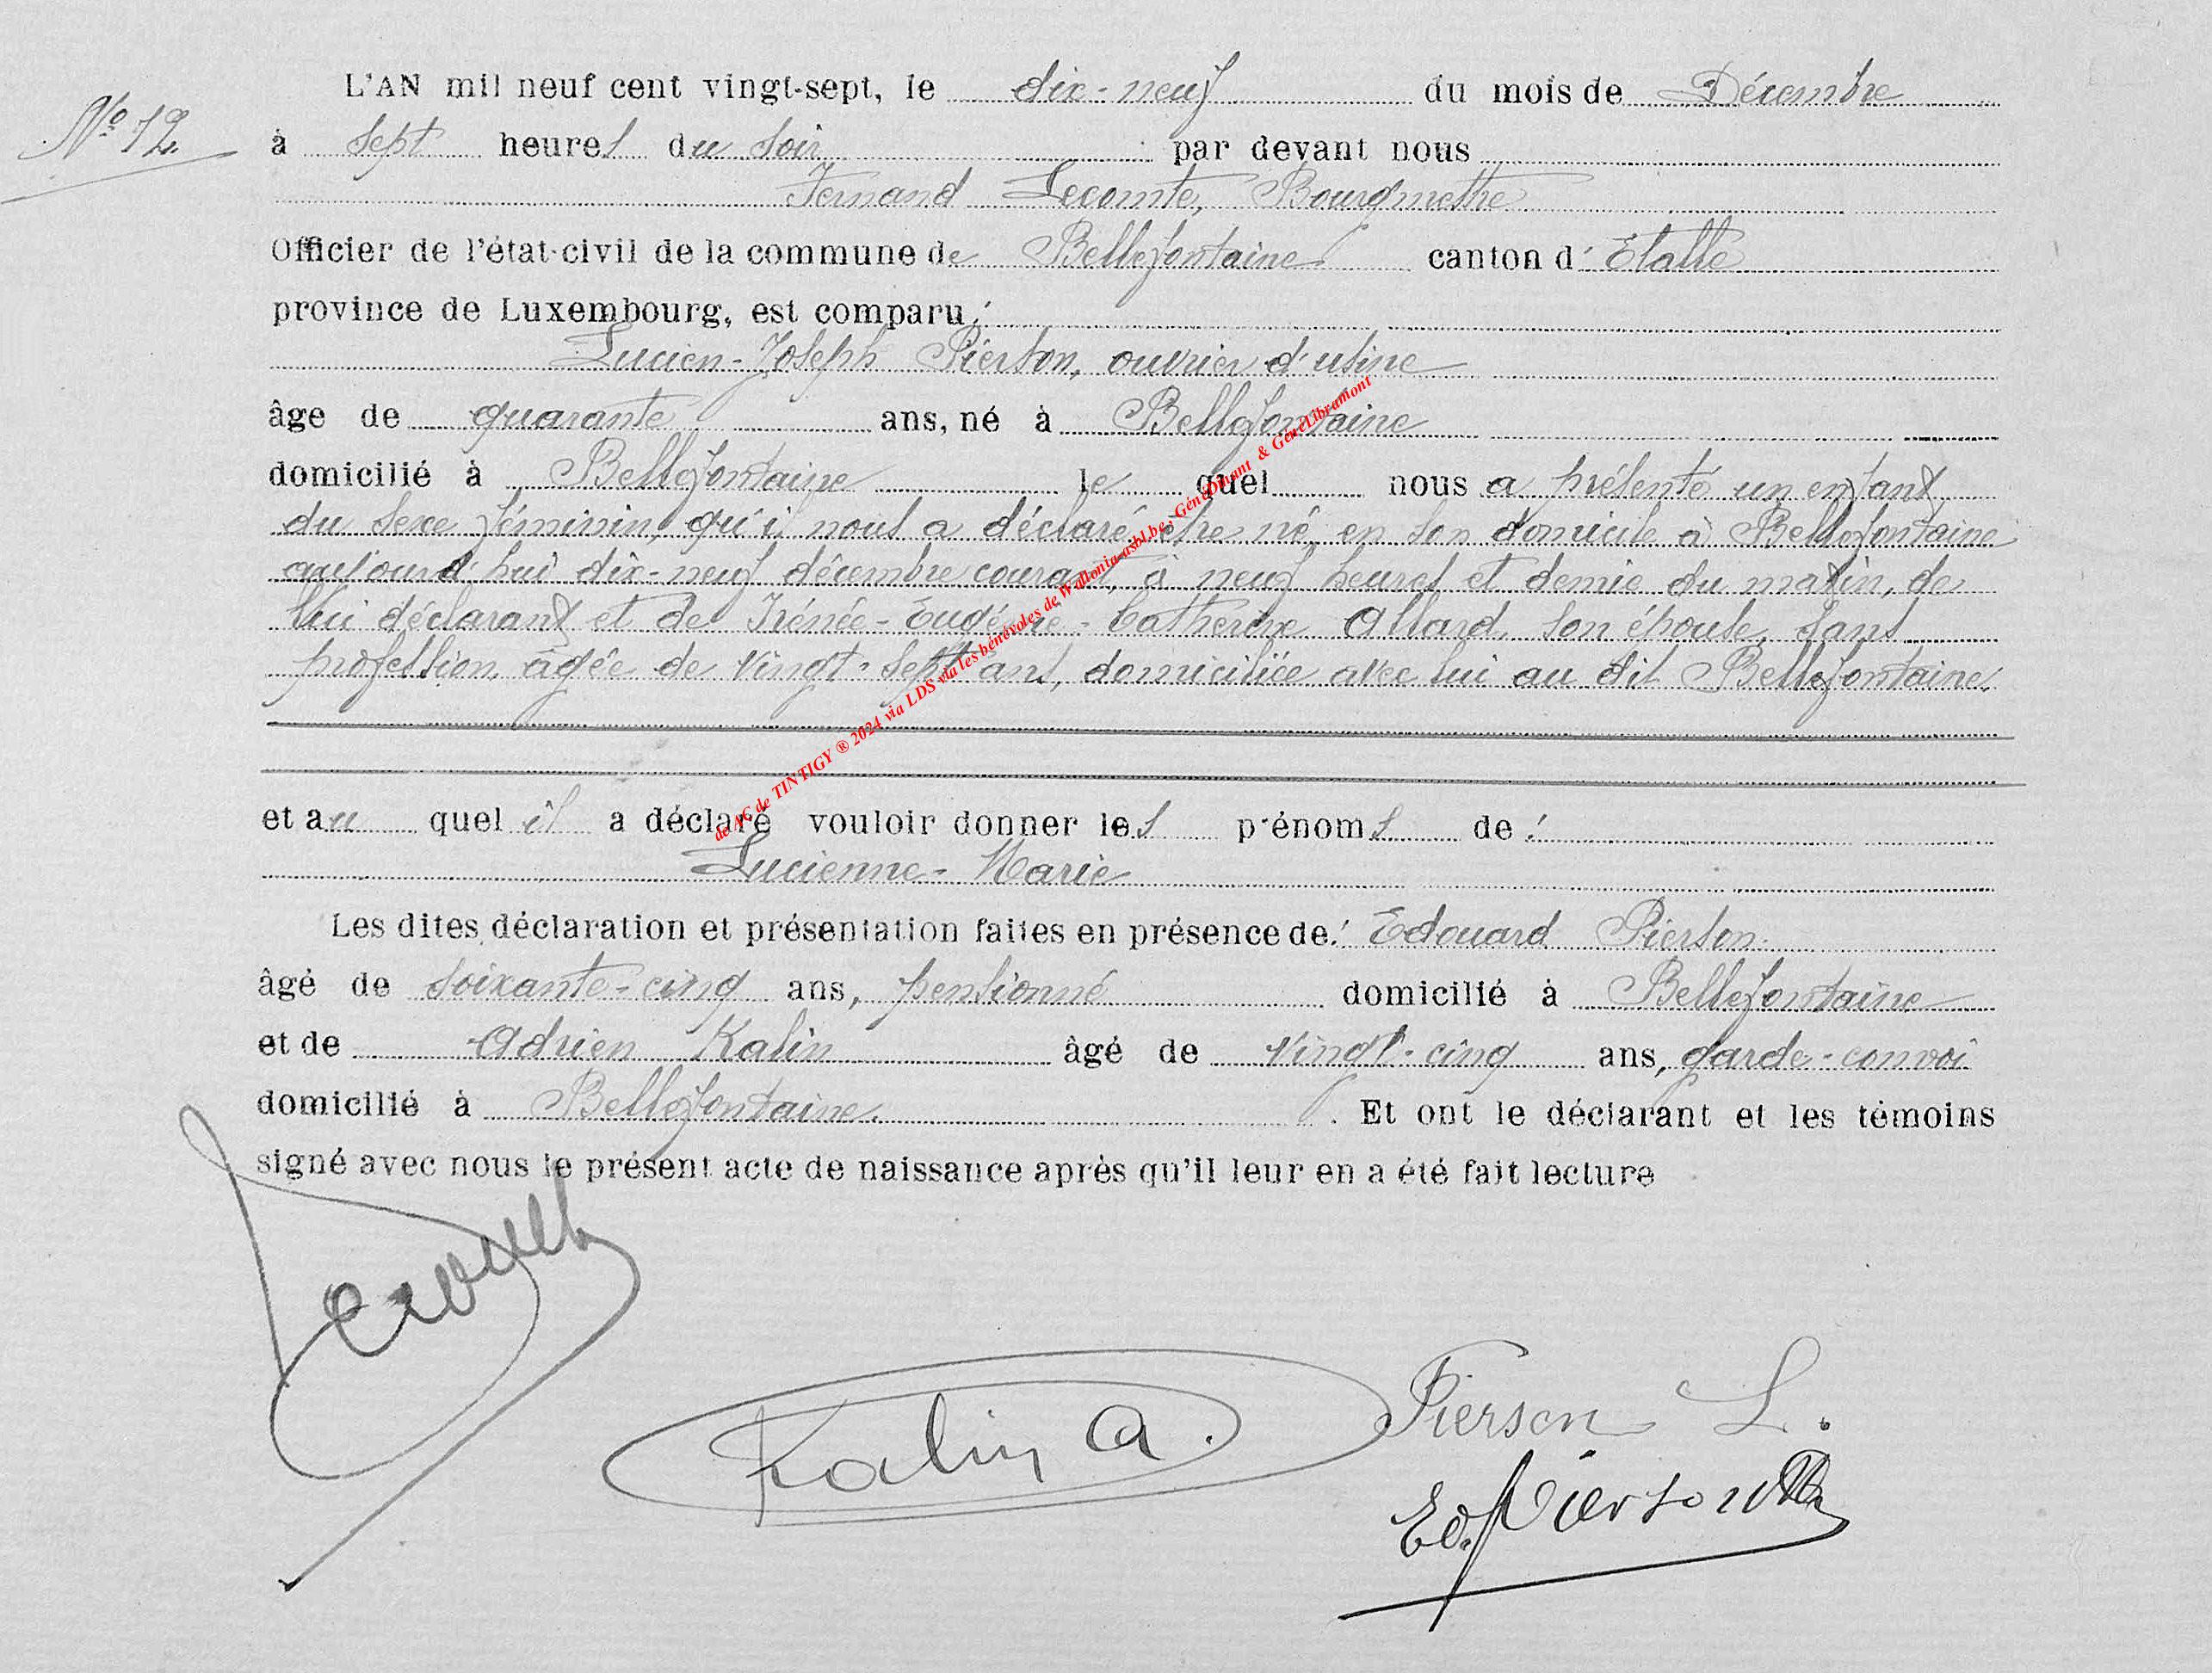 L'AN mil neuf cent vingt-sept, le dix-neuf du mois de Décembre
N° 12. à sept heures du soir par devant nous
Fernand Lecomte, Bourgmestre
Officier de l'état-civil de la commune de Bellefontaine canton d'Etalle
province de Luxembourg, est comparu :
Lucien-Joseph Pierson, ouvrier d'usine
âge de quarante ans, né à Bellefontaine
domicilié à Bellefontaine lequel nous a présenté un enfant
du sexe féminin, qu'il nous a déclaré être né en son domicile à Bellefontaine
aujourd'hui dix-neuf décembre courant, à neuf heures et demie du matin, de
lui déclarant et de Irénée-Eugénie-Catherine Allard, son épouse, sans
profession, âgée de vingt-sept ans, domiciliée avec lui au dit Bellefontaine.
et au quel il a déclaré vouloir donner les prénoms de :
Lucienne-Marie
Les dites déclaration et présentation faites en présence de : Edouard Pierson
âgé de soixante-cinq ans, pensionné domicilié à Bellefontaine
et de Adrien Kalin âgé de vingt-cinq ans, garde-convoi
domicilié à Bellefontaine. Et ont le déclarant et les témoins
signé avec nous le présent acte de naissance après qu'il leur en a été fait lecture
Pierson L.
Kalin A.
Ed. Pierson
de AC de TINTIGY ® 2024 via LDS via les bénévoles de Wallonia-asbl.be ; GénéDinant & GénéLibramont